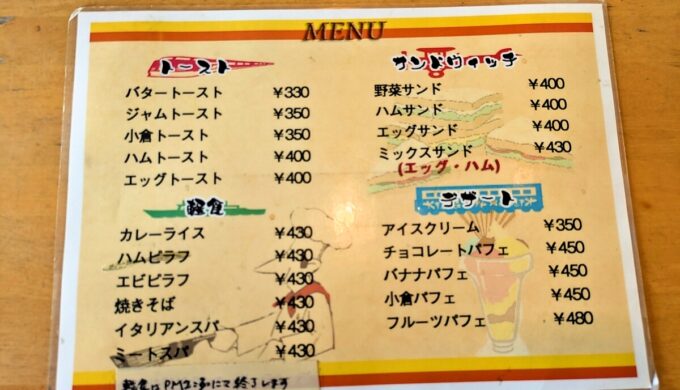 MENU
トースト
バタートースト ¥330
ジャムトースト ¥350
小倉トースト ¥350
ハムトースト ¥400
エッグトースト ¥400
軽食
カレーライス ¥430
ハムピラフ ¥430
エビピラフ ¥430
焼きそば ¥430
イタリアンスパ ¥430
ミートスパ ¥430
軽食はPM2:30にて終了します
サンドウィッチ
野菜サンド ¥400
ハムサンド ¥400
エッグサンド ¥400
ミックスサンド ¥430
(エッグ・ハム)
デザート
アイスクリーム ¥350
チョコレートパフェ ¥450
バナナパフェ ¥450
小倉パフェ ¥450
フルーツパフェ ¥480